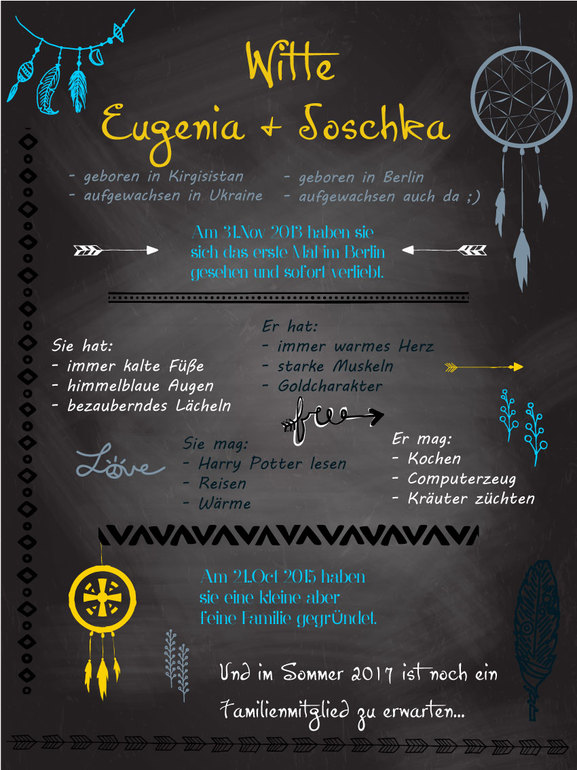 Witte
Eugenia + Joschka
- geboren in Kirgisistan
- aufgewachsen in Ukraine
- geboren in Berlin
- aufgewachsen auch da ;)
Am 31.Nov 2013 haben sie
sich das erste Mal im Berlin
gesehen und sofort verliebt.
Sie hat:
- immer kalte Füße
- himmelblaue Augen
- bezauberndes Lächeln
Er hat:
- immer warmes Herz
- starke Muskeln
- Goldcharakter
free
Love
Sie mag:
- Harry Potter lesen
- Reisen
- Wärme
Er mag:
- Kochen
- Computerzeug
- Kräuter züchten
Am 24.Oct 2015 haben
sie eine kleine aber
feine Familie gegrÜndet.
Und im Sommer 2017 ist noch ein
Familienmitglied zu erwarten...